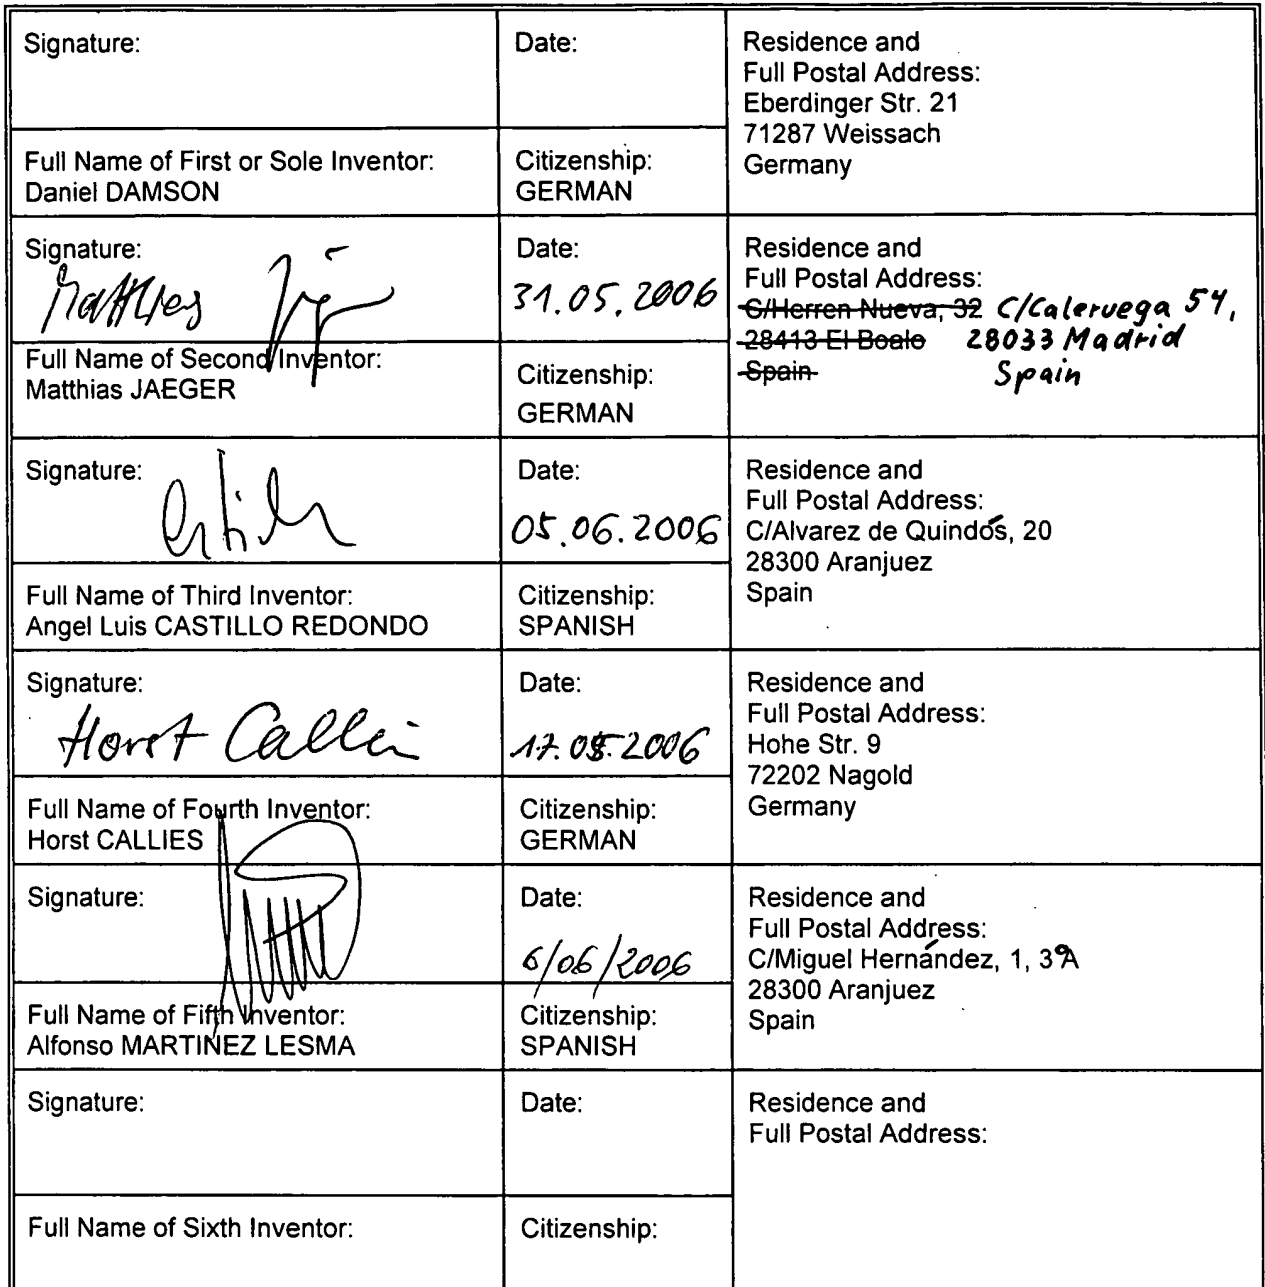 Signature:
Date:
Residence and
Full Postal Address:
Eberdinger Str. 21
71287 Weissach
Germany
Full Name of First or Sole Inventor:
Daniel DAMSON
Citizenship:
GERMAN
Signature:
Matthias
Date:
31.05.2006
Residence and
Full Postal Address:
C/Herren Nueva, 32 C/Caleruega 54,
28413 El Boalo 28033 Madrid
Spain Spain
Full Name of Second Inventor:
Matthias JAEGER
Citizenship:
GERMAN
Signature:
Date:
05.06.2006
Residence and
Full Postal Address:
C/Alvarez de Quindós, 20
28300 Aranjuez
Spain
Full Name of Third Inventor:
Angel Luis CASTILLO REDONDO
Citizenship:
SPANISH
Signature:
Horst Callies
Date:
17.05.2006
Residence and
Full Postal Address:
Hohe Str. 9
72202 Nagold
Germany
Full Name of Fourth Inventor:
Horst CALLIES
Citizenship:
GERMAN
Signature:
Date:
6/06/2006
Residence and
Full Postal Address:
C/Miguel Hernández, 1, 3ºA
28300 Aranjuez
Spain
Full Name of Fifth Inventor:
Alfonso MARTINEZ LESMA
Citizenship:
SPANISH
Signature:
Date:
Residence and
Full Postal Address:
Full Name of Sixth Inventor:
Citizenship: